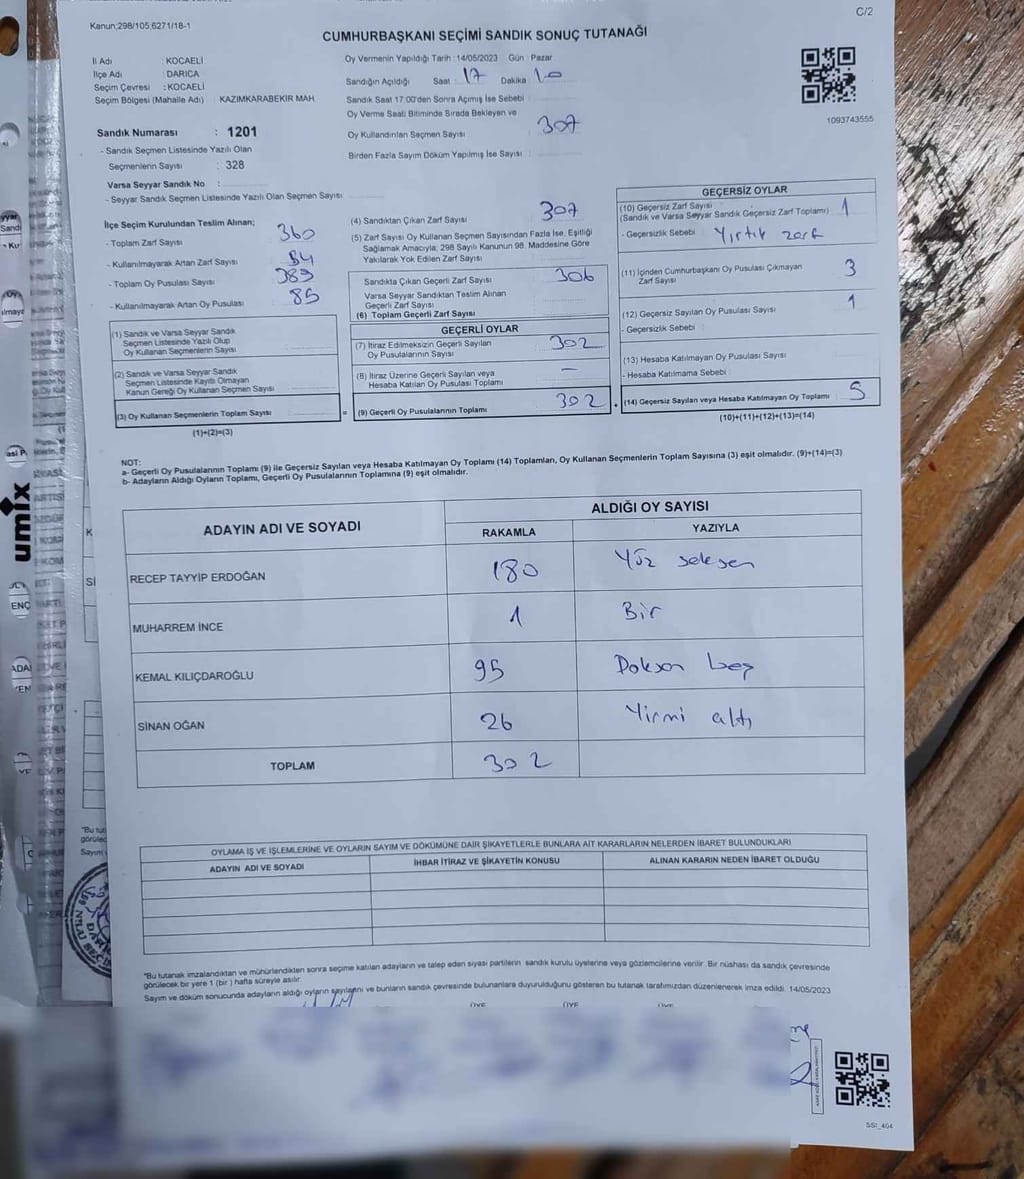 C/2
Kanun:298/105,6271/18-1
CUMHURBAŞKANI SEÇİMİ SANDIK SONUÇ TUTANAĞI
İl Adı : KOCAELİ
İlçe Adı : DARICA
Seçim Çevresi : KOCAELİ
Seçim Bölgesi (Mahalle Adı) : KAZIMKARABEKIR MAH.
Sandık Numarası : 1201
- Sandık Seçmen Listesinde Yazılı Olan
Seçmenlerin Sayısı : 328
Varsa Seyyar Sandık No :
- Seyyar Sandık Seçmen Listesinde Yazılı Olan Seçmen Sayısı
Oy Vermenin Yapıldığı Tarih :14/05/2023 Gün : Pazar
Sandığın Açıldığı Saat : 17 Dakika : 10
Sandık Saat 17.00'den Sonra Açımış İse Sebebi
Oy Verme Saati Bitiminde Sırada Bekleyen ve
Oy Kullandırılan Seçmen Sayısı : 307
Birden Fazla Sayım Döküm Yapılmış İse Sayısı :
1093743555
İlçe Seçim Kurulundan Teslim Alınan;
- Toplam Zarf Sayısı 360
- Kullanılmayarak Artan Zarf Sayısı 54
- Toplam Oy Pusulası Sayısı 389
- Kullanılmayarak Artan Oy Pusulası 85
(1) Sandık ve Varsa Seyyar Sandık
Seçmen Listesinde Yazılı Olup
Oy Kullanan Seçmenlerin Sayısı
(2) Sandık ve Varsa Seyyar Sandık
Seçmen Listesinde Kayıtlı Olmayan
Kanun Gereği Oy Kullanan Seçmen Sayısı
(3) Oy Kullanan Seçmenlerin Toplam Sayısı =
(1)+(2)=(3)
(4) Sandıktan Çıkan Zarf Sayısı 307
(5) Zarf Sayısı Oy Kullanan Seçmen Sayısından Fazla İse, Eşitliği
Sağlamak Amacıyla, 298 Sayılı Kanunun 98. Maddesine Göre
Yakılarak Yok Edilen Zarf Sayısı
Sandıkta Çıkan Geçerli Zarf Sayısı 306
Varsa Seyyar Sandıktan Teslim Alınan
Geçerli Zarf Sayısı
(6) Toplam Geçerli Zarf Sayısı
GEÇERLİ OYLAR
(7) İtiraz Edilmeksizin Geçerli Sayılan
Oy Pusulalarının Sayısı 302
(8) İtiraz Üzerine Geçerli Sayılan veya
Hesaba Katılan Oy Pusulası Toplamı –
(9) Geçerli Oy Pusulalarının Toplamı 302 +
GEÇERSİZ OYLAR
(10) Geçersiz Zarf Sayısı
(Sandık ve Varsa Seyyar Sandık Geçersiz Zarf Toplamı) 1
- Geçersizlik Sebebi : Yırtık zarf
(11) İçinden Cumhurbaşkanı Oy Pusulası Çıkmayan
Zarf Sayısı 3
(12) Geçersiz Sayılan Oy Pusulası Sayısı 1
- Geçersizlik Sebebi :
(13) Hesaba Katılmayan Oy Pusulası Sayısı
- Hesaba Katılmama Sebebi :
(14) Geçersiz Sayılan veya Hesaba Katılmayan Oy Toplamı 5
(10)+(11)+(12)+(13)=(14)
NOT:
a- Geçerli Oy Pusulalarının Toplamı (9) ile Geçersiz Sayılan veya Hesaba Katılmayan Oy Toplamı (14) Toplamları, Oy Kullanan Seçmenlerin Toplam Sayısına (3) eşit olmalıdır. (9)+(14)=(3)
b- Adayların Aldığı Oyların Toplamı, Geçerli Oy Pusulalarının Toplamına (9) eşit olmalıdır.
ADAYIN ADI VE SOYADI
ALDIĞI OY SAYISI
RAKAMLA YAZIYLA
RECEP TAYYİP ERDOĞAN 180 Yüz seksen
MUHARREM İNCE 1 Bir
KEMAL KILIÇDAROĞLU 95 Doksan beş
SİNAN OĞAN 26 Yirmi altı
TOPLAM 302
OYLAMA İŞ VE İŞLEMLERİNE VE OYLARIN SAYIM VE DÖKÜMÜNE DAİR ŞİKAYETLERLE BUNLARA AİT KARARLARIN NELERDEN İBARET BULUNDUKLARI
ADAYIN ADI VE SOYADI İHBAR İTİRAZ VE ŞİKAYETİN KONUSU ALINAN KARARIN NEDEN İBARET OLDUĞU
*Bu tutanak imzalandıktan ve mühürlendikten sonra seçime katılan adayların ve talep eden siyasi partilerin sandık kurulu üyelerine veya gözlemcilerine verilir. Bir nüshası da sandık çevresinde
görülecek bir yere 1 (bir) hafta süreyle asılır.
Sayım ve döküm sonucunda adayların aldığı oyların sayılarını ve bunların sandık çevresinde bulunanlara duyurulduğunu gösteren bu tutanak tarafımızdan düzenlenerek imza edildi. 14/05/2023
ÜYE ÜYE ÜYE
SSİ_404
umix